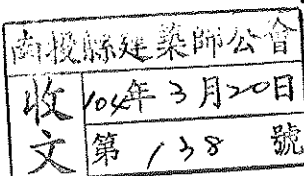 南投縣建築師公會
收文
104年3月20日
第138號